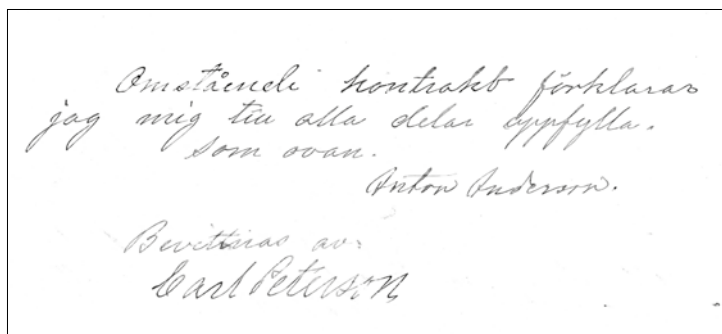 Omstående kontrakt förklarar
jag mig till alla delar uppfylla.
Som ovan.
Anton Anderson.
Bevittnas av:
Carl Peterson